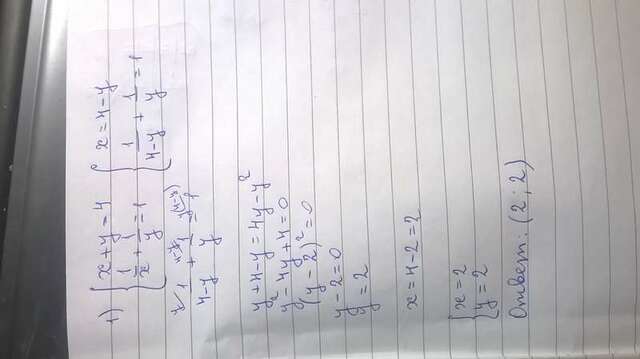 1) { x + y = 4   { x = 4 - y
{ 1/x + 1/y = 1   { 1/(4-y) + 1/y = 1
y/ 1/(4-y) + 4-y/ 1/y = y(4-y)/ 1
y + 4 - y = 4y - y²
y² - 4y + 4 = 0
(y - 2)² = 0
y - 2 = 0
y = 2
x = 4 - 2 = 2
{ x = 2
{ y = 2
Ответ: (2; 2)